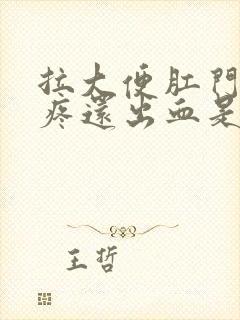 拉大便肛門
疼還出血是
王哲